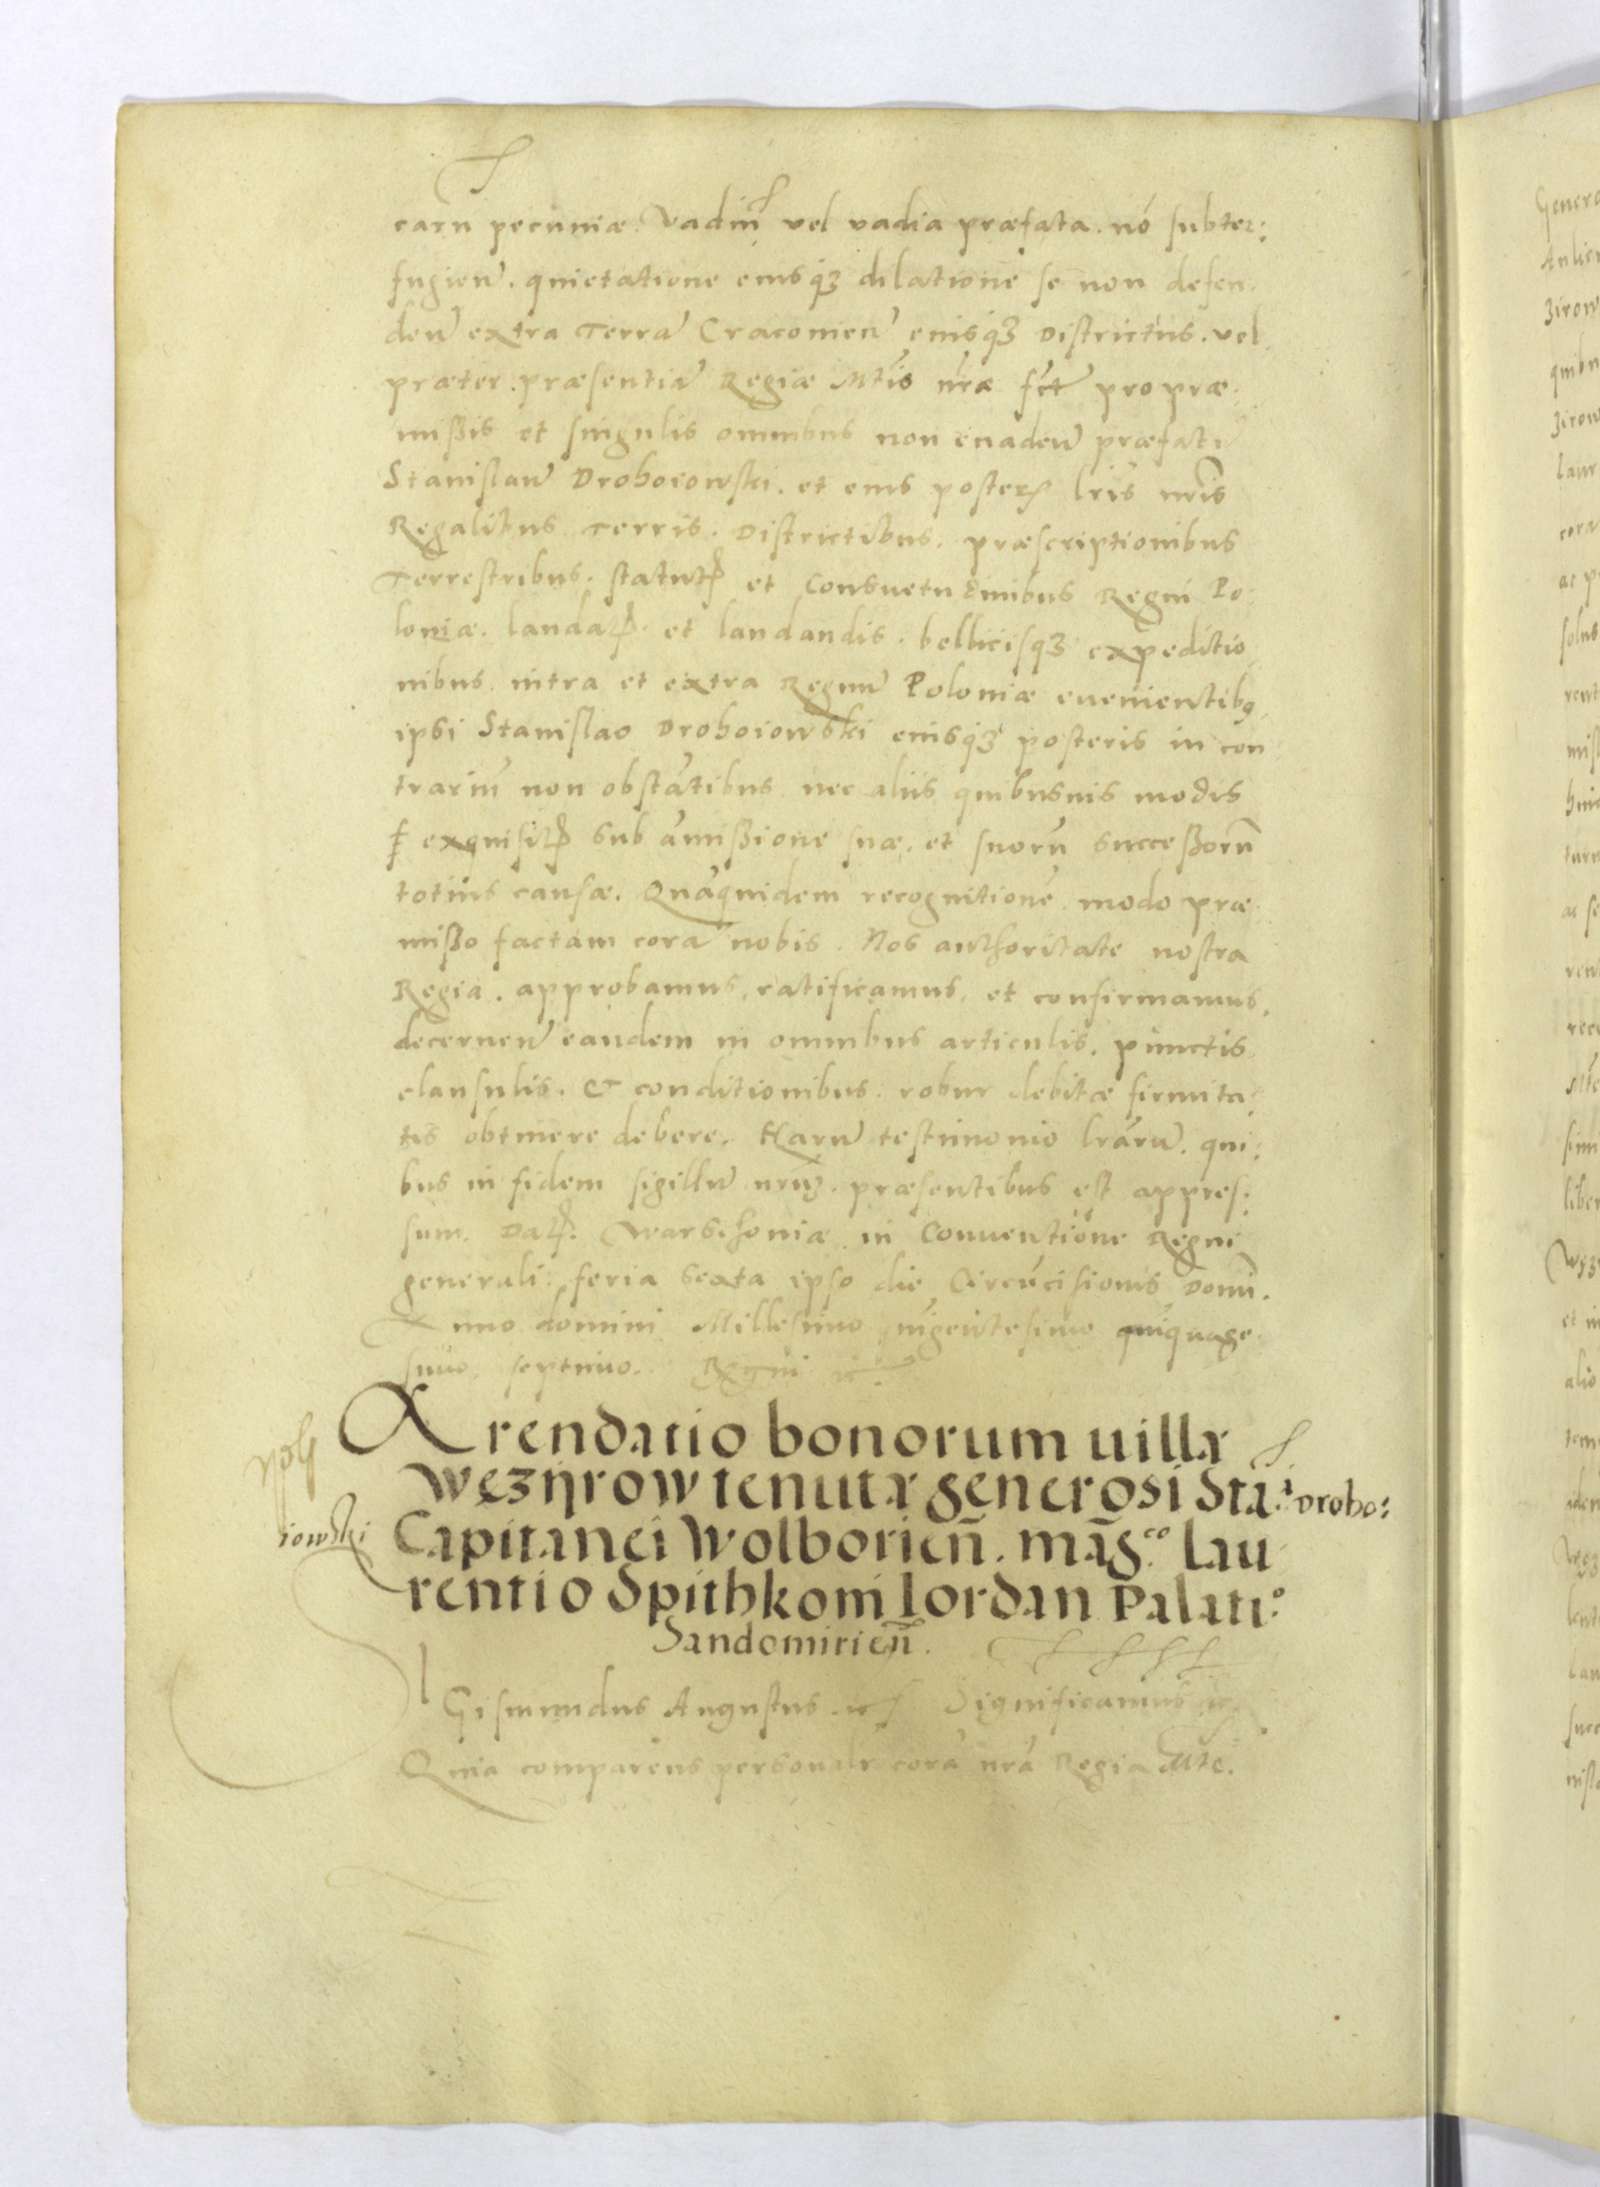 carn pecuniæ. Vadiū vel vadia præfata. nō subter:
fugien̄. quietatione eiusq3 dilatione se non defen
den̄ extra Terrā Cracovien̄ eiusq3 Districtus. vel
præter præsentiā Regiæ Mtis nr̄æ pro præ
missis et singulis omnibus non evaden̄ præfati
Stanislaū Drohoiowski. et eius poster̄ lris nris
Regalibus Terris. Districtibus. præscriptionibus
Terrestribus. statut̄ et Consuetudinibus Regni Po
loniæ. laudat̄. et laudandis. bellicisq3 expeditio
nibus. intra et extra Regnū Poloniæ evenientib9
ipsi Stanislao Drohoiowski eiusq3 posteris in con
trariū non obstātibus nec aliis quibusvis modis
exquisit̄ sub āmissione suæ. et suorū Successorū
totius causæ. Quāquidem recognitionē modo præ
misso factam corā nobis. Nos authoritate nostra
Regia. approbamus, ratificamus, et confirmamus,
decernen̄ eandem in omnibus articulis. punctis
clausulis. & conditionibus. robur debitæ firmita:
tis obtinere debere. Harū testimonio lrārū. qui:
bus in fidem sigillū nrū. præsentibus est appres:
sum. Dat̄. Warschoviæ in Conventione Regni
generali. feria sexta ipso die Circūcisionis Domī.
Anno domini Millesimo quigentesimo quīquage
simo septimo. Regni
Arendatio bonorum uillæ
Węzÿrow tenutæ generosi Sta: Droho:
iowski Capitanei Wolborień. mag.co Lau
rentio Spithkoni Iordan Palati:
Sandomirień.
Gismundus Augustus. Significamus
Quia comparens personalr corā nrā Regia Mte.